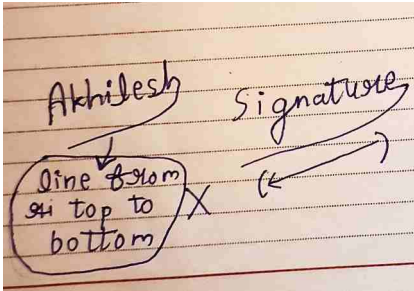 Akhilesh
Signature
line from
top to
bottom
X